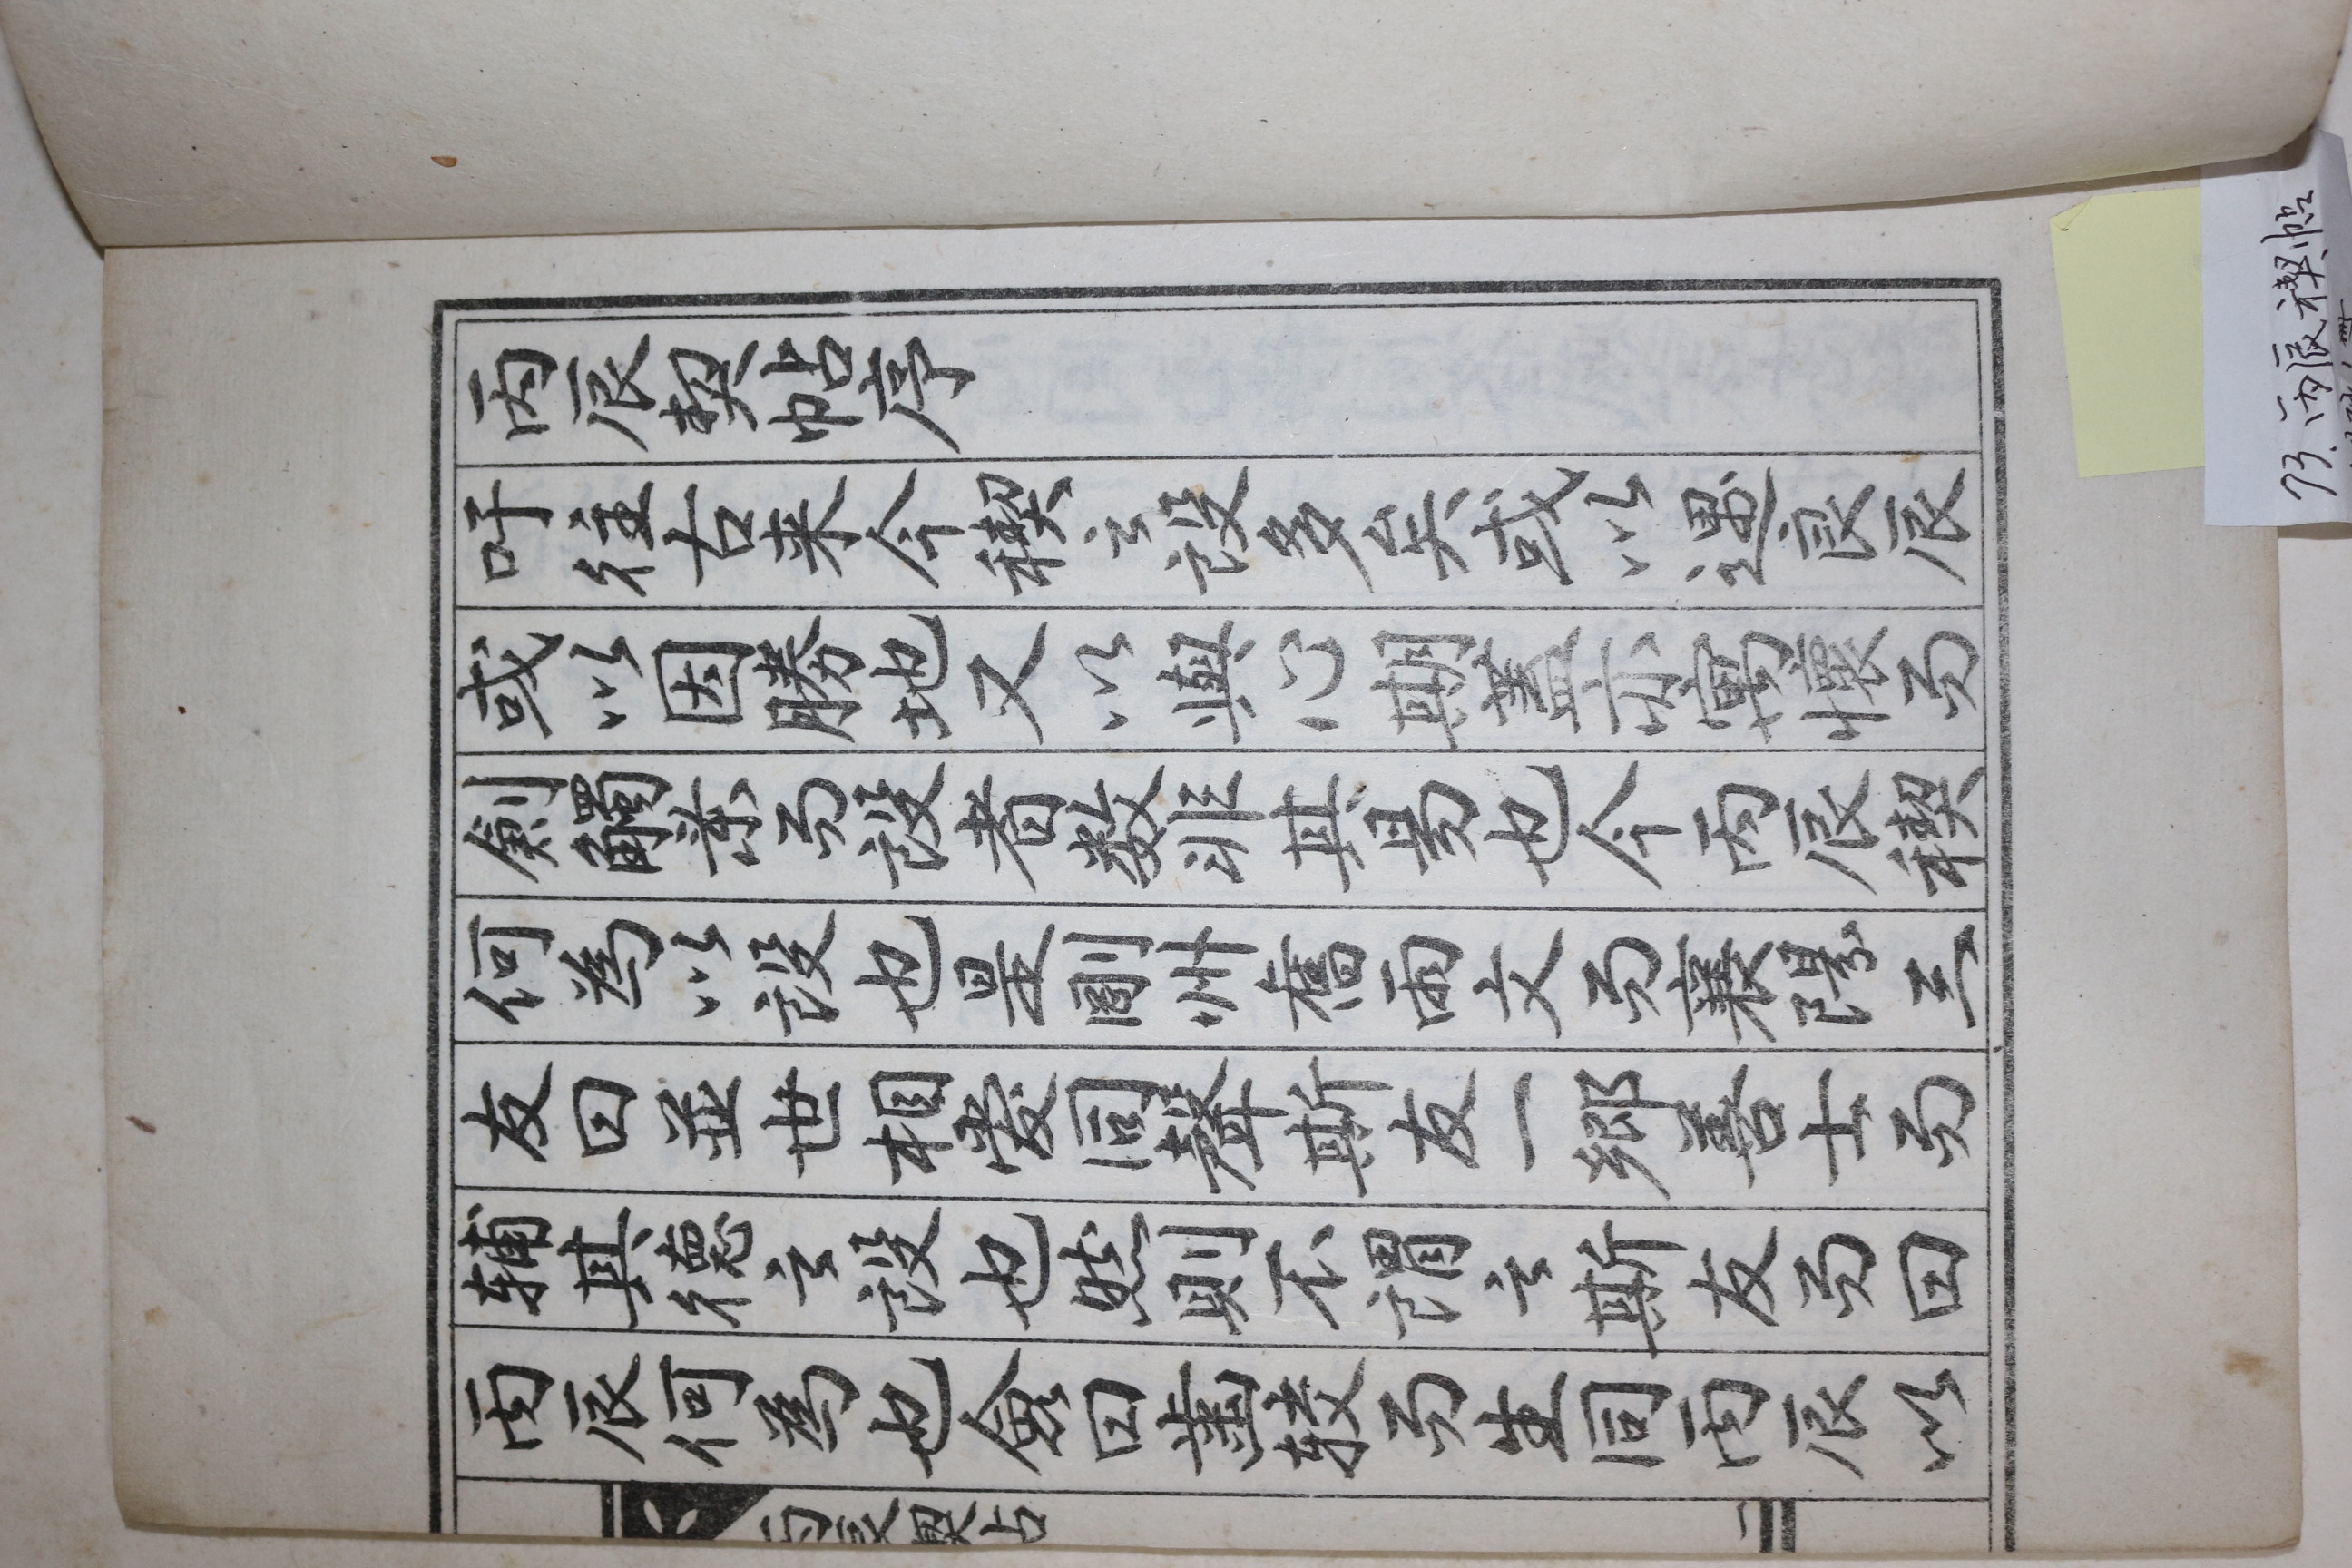 丙辰契帖序
吁往古来今稧之設多矣或以遇良辰
或以因勝地又以與心期蓋亦寓懷而
劍觸業而設者数非其易也今丙辰稧
何為以設也是剛州舊雨文而襄陽三
友曰並世相愛同聲斯友一鄉善士而
辅其德之設也然則不謂之斯友而曰
丙辰何為也僉曰齒较而生同丙辰以
丙辰契帖
二
73. 丙辰稧帖